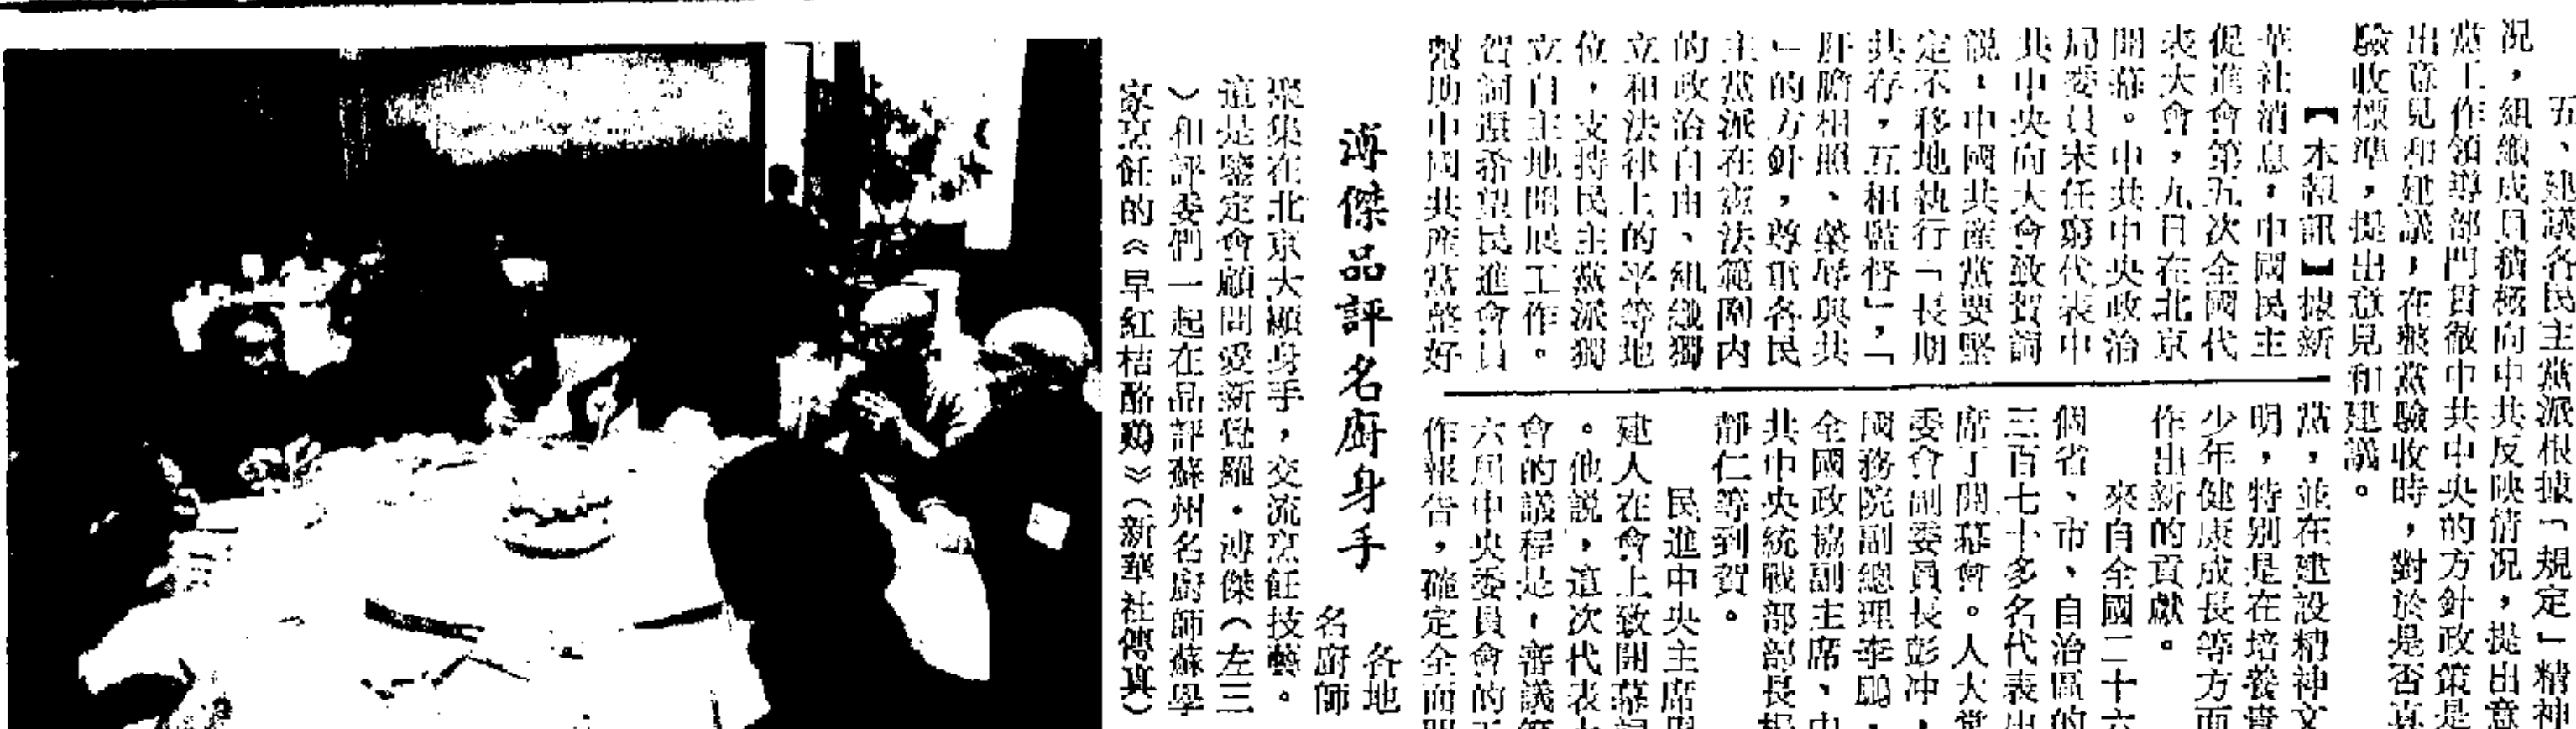 五、建議各民主黨派根據「規定」精神
况，組織成員積極向中共反映情况，提出意
黨工作領導部門貫徹中共中央的方針政策是
出意見和建議，在整黨驗收時，對於是否真
驗收標準，提出意見和建議。
【本報訊】據新
華社消息，中國民主
促進會第五次全國代
表大會，九日在北京
開幕。中共中央政治
局委員宋任窮代表中
共中央向大會致賀詞
説：中國共產黨要堅
定不移地執行「長期
共存，互相監督」，「
肝膽相照、榮辱與共
」的方針，尊重各民
主黨派在憲法範圍内
的政治自由、組織獨
立和法律上的平等地
位，支持民主黨派獨
立自主地開展工作。
賀詞還希望民進會員
幫助中國共產黨整好
黨，並在建設精神文
明，特别是在培養青
少年健康成長等方面
作出新的貢獻。
來自全國二十六
個省、市、自治區的
三百七十多名代表出
席了開幕會。人大常
委會副委員長彭冲，
國務院副總理李鵬，
全國政協副主席、中
共中央統戰部部長楊
靜仁等到賀。
民進中央主席
建人在會上致開幕詞
。他説，這次代表大
會的議程是：審議第
六屆中央委員會的工
作報告，確定全面
溥傑品評名廚身手
各地
名廚師
聚集在北京大顯身手，交流烹飪技藝。
這是鑒定會顧問愛新覺羅·溥傑（左三
）和評委們一起在品評蘇州名廚師蘇學
家烹飪的《早紅桔酪鷄》（新華社傳真）